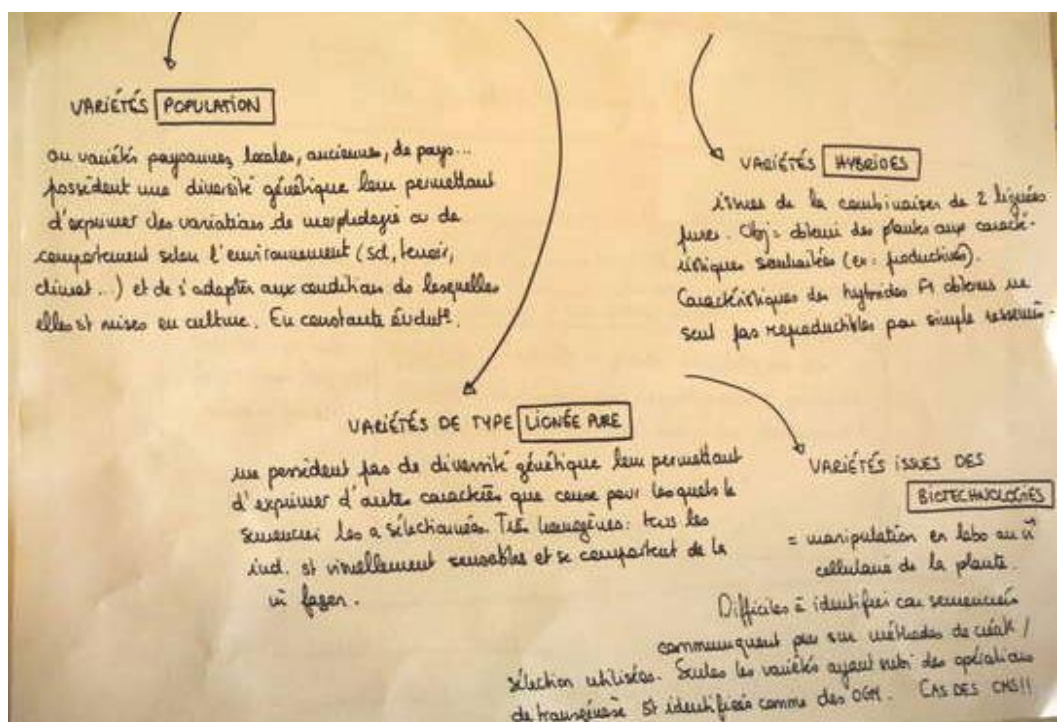 VARIÉTÉS POPULATION
ou variétés paysannes, locales, anciennes, de pays...
possèdent une diversité génétique leur permettant
d'exprimer des variations de morphologie ou de
comportement selon l'environnement (sol, terroir,
climat...) et de s'adapter aux conditions ds lesquelles
elles st mises en culture. En constante évolut°.
VARIÉTÉS HYBRIDES
issues de la combinaison de 2 lignées
pures. Obj = obtenir des plantes aux caracté-
ristiques souhaitées (ex: productives).
Caractéristiques des hybrides F1 obtenus ne
sont pas reproductibles par simple
VARIÉTÉS DE TYPE LIGNÉE PURE
ne possèdent pas de diversité génétique leur permettant
d'exprimer d'autres caractères que ceux pour lesquels le
semencier les a sélectionnées. Très homogènes: tous les
ind. st visuellement semblables et se comportent de la
m̂ façon.
VARIÉTÉS ISSUES DES
BIOTECHNOLOGIES
= manipulation en labo au
cellulaire de la plante.
Difficiles à identifier car semenciers
communiquent peu sur méthodes de créat° /
sélection utilisées. Seules les variétés ayant subi des opérations
de transgénèse st identifiées comme des OGM. CAS DES CMS!!